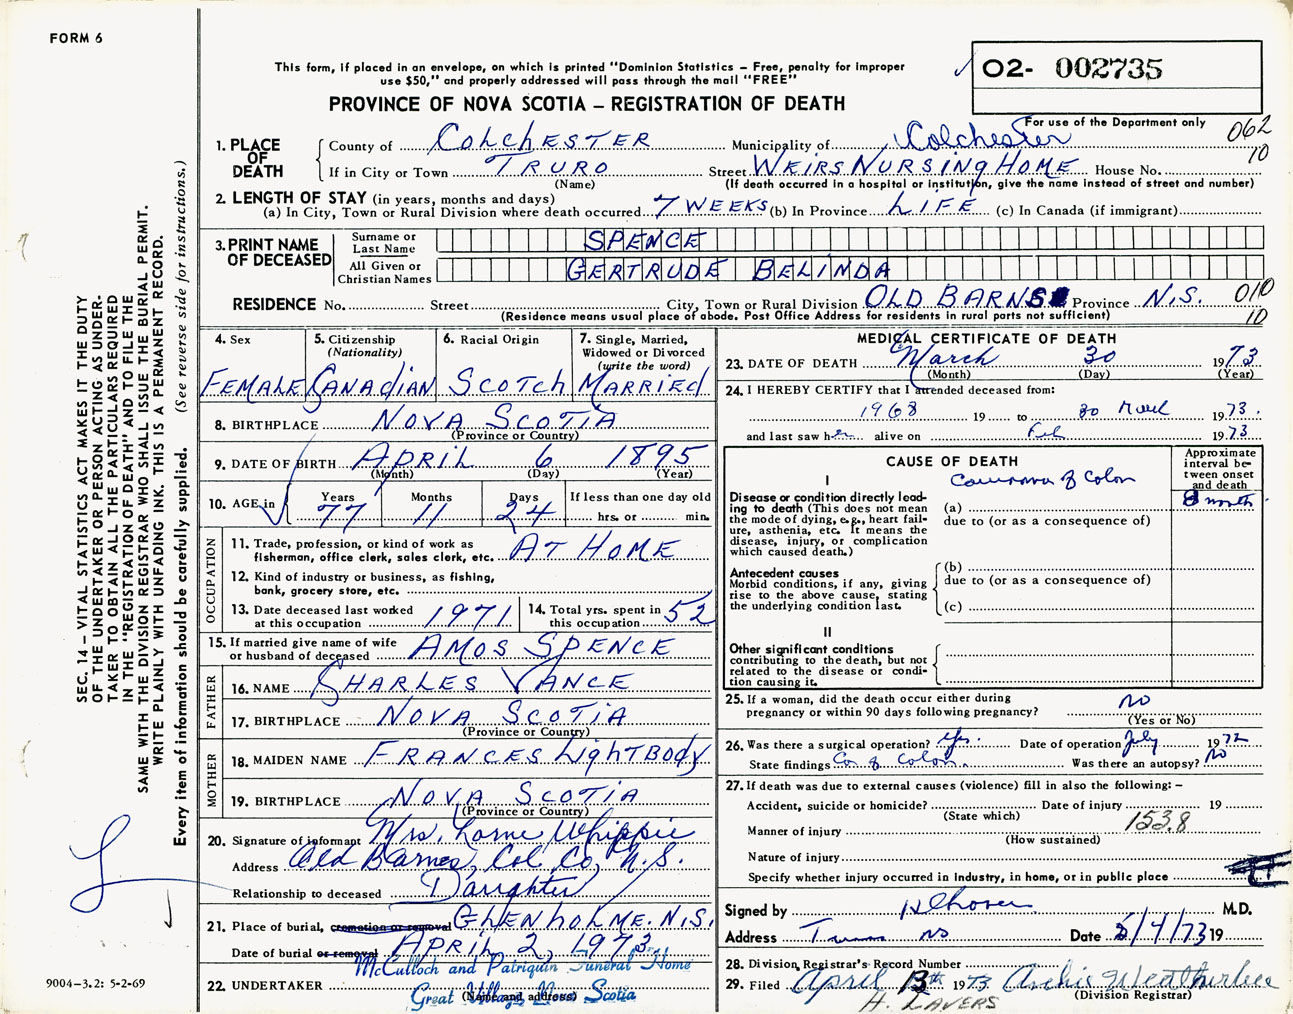 FORM 6
This form, if placed in an envelope, on which is printed "Dominion Statistics – Free, penalty for improper
use $50," and properly addressed will pass through the mail "FREE"
PROVINCE OF NOVA SCOTIA – REGISTRATION OF DEATH
O2- 002735
For use of the Department only
062
10
1. PLACE OF DEATH
County of COLCHESTER Municipality of Colchester
If in City or Town TRURO Street WEIRS NURSING HOME House No.
(Name) (If death occurred in a hospital or institution, give the name instead of street and number)
2. LENGTH OF STAY (in years, months and days)
(a) In City, Town or Rural Division where death occurred 7 WEEKS (b) In Province LIFE (c) In Canada (if immigrant)
3. PRINT NAME OF DECEASED
Surname or Last Name SPENCE
All Given or Christian Names GERTRUDE BELINDA
RESIDENCE No. Street City, Town or Rural Division OLD BARNS Province N.S. 010
(Residence means usual place of abode. Post Office Address for residents in rural parts not sufficient) 10
4. Sex FEMALE
5. Citizenship (Nationality) CANADIAN
6. Racial Origin SCOTCH
7. Single, Married, Widowed or Divorced (write the word) MARRIED
8. BIRTHPLACE NOVA SCOTIA
(Province or Country)
9. DATE OF BIRTH APRIL 6 1895
(Month) (Day) (Year)
10. AGE in Years 77 Months 11 Days 24 If less than one day old hrs. or min.
OCCUPATION
11. Trade, profession, or kind of work as fisherman, office clerk, sales clerk, etc. AT HOME
12. Kind of industry or business, as fishing, bank, grocery store, etc.
13. Date deceased last worked at this occupation 1971
14. Total yrs. spent in this occupation 52
15. If married give name of wife or husband of deceased AMOS SPENCE
FATHER
16. NAME CHARLES VANCE
17. BIRTHPLACE NOVA SCOTIA
(Province or Country)
MOTHER
18. MAIDEN NAME FRANCES LIGHTBODY
19. BIRTHPLACE NOVA SCOTIA
(Province or Country)
20. Signature of informant Mrs. Lorne Whippie
Address Old Barns, Col. Co, N.S.
Relationship to deceased Daughter
21. Place of burial, cremation or removal GLENHOLME. N.S.
Date of burial or removal APRIL 2, 1973
22. UNDERTAKER McCulloch and Patriquin Funeral Home
Great Village, Nova Scotia
(Name and address)
MEDICAL CERTIFICATE OF DEATH
23. DATE OF DEATH March 30 1973
(Month) (Day) (Year)
24. I HEREBY CERTIFY that I attended deceased from:
1968 19 to 30 March 1973.
and last saw her alive on Feb 1973
CAUSE OF DEATH
Approximate interval between onset and death
I
Disease or condition directly leading to death (This does not mean the mode of dying, e.g., heart failure, asthenia, etc. It means the disease, injury, or complication which caused death.)
(a) Carcinoma of Colon 8 months
due to (or as a consequence of)
Antecedent causes
Morbid conditions, if any, giving rise to the above cause, stating the underlying condition last.
(b)
due to (or as a consequence of)
(c)
II
Other significant conditions contributing to the death, but not related to the disease or condition causing it.
25. If a woman, did the death occur either during pregnancy or within 90 days following pregnancy? no
(Yes or No)
26. Was there a surgical operation? Yes. Date of operation July 1972
State findings Ca of Colon. Was there an autopsy? no
27. If death was due to external causes (violence) fill in also the following: –
Accident, suicide or homicide? Date of injury 19
(State which)
Manner of injury 153.8
(How sustained)
Nature of injury
Specify whether injury occurred in industry, in home, or in public place
Signed by M.D.
Address Truro NS Date 5/4/73 19
28. Division Registrar's Record Number
29. Filed April 13th 1973 Archie Weatherbee
(Division Registrar)
H. LAVERS
SEC. 14 – VITAL STATISTICS ACT MAKES IT THE DUTY
OF THE UNDERTAKER OR PERSON ACTING AS UNDERTAKER
TO OBTAIN ALL THE PARTICULARS REQUIRED
IN THE "REGISTRATION OF DEATH" AND TO FILE THE
SAME WITH THE DIVISION REGISTRAR WHO SHALL ISSUE THE BURIAL PERMIT.
WRITE PLAINLY WITH UNFADING INK. THIS IS A PERMANENT RECORD.
Every item of information should be carefully supplied. (See reverse side for instructions.)
9004-3.2: 5-2-69